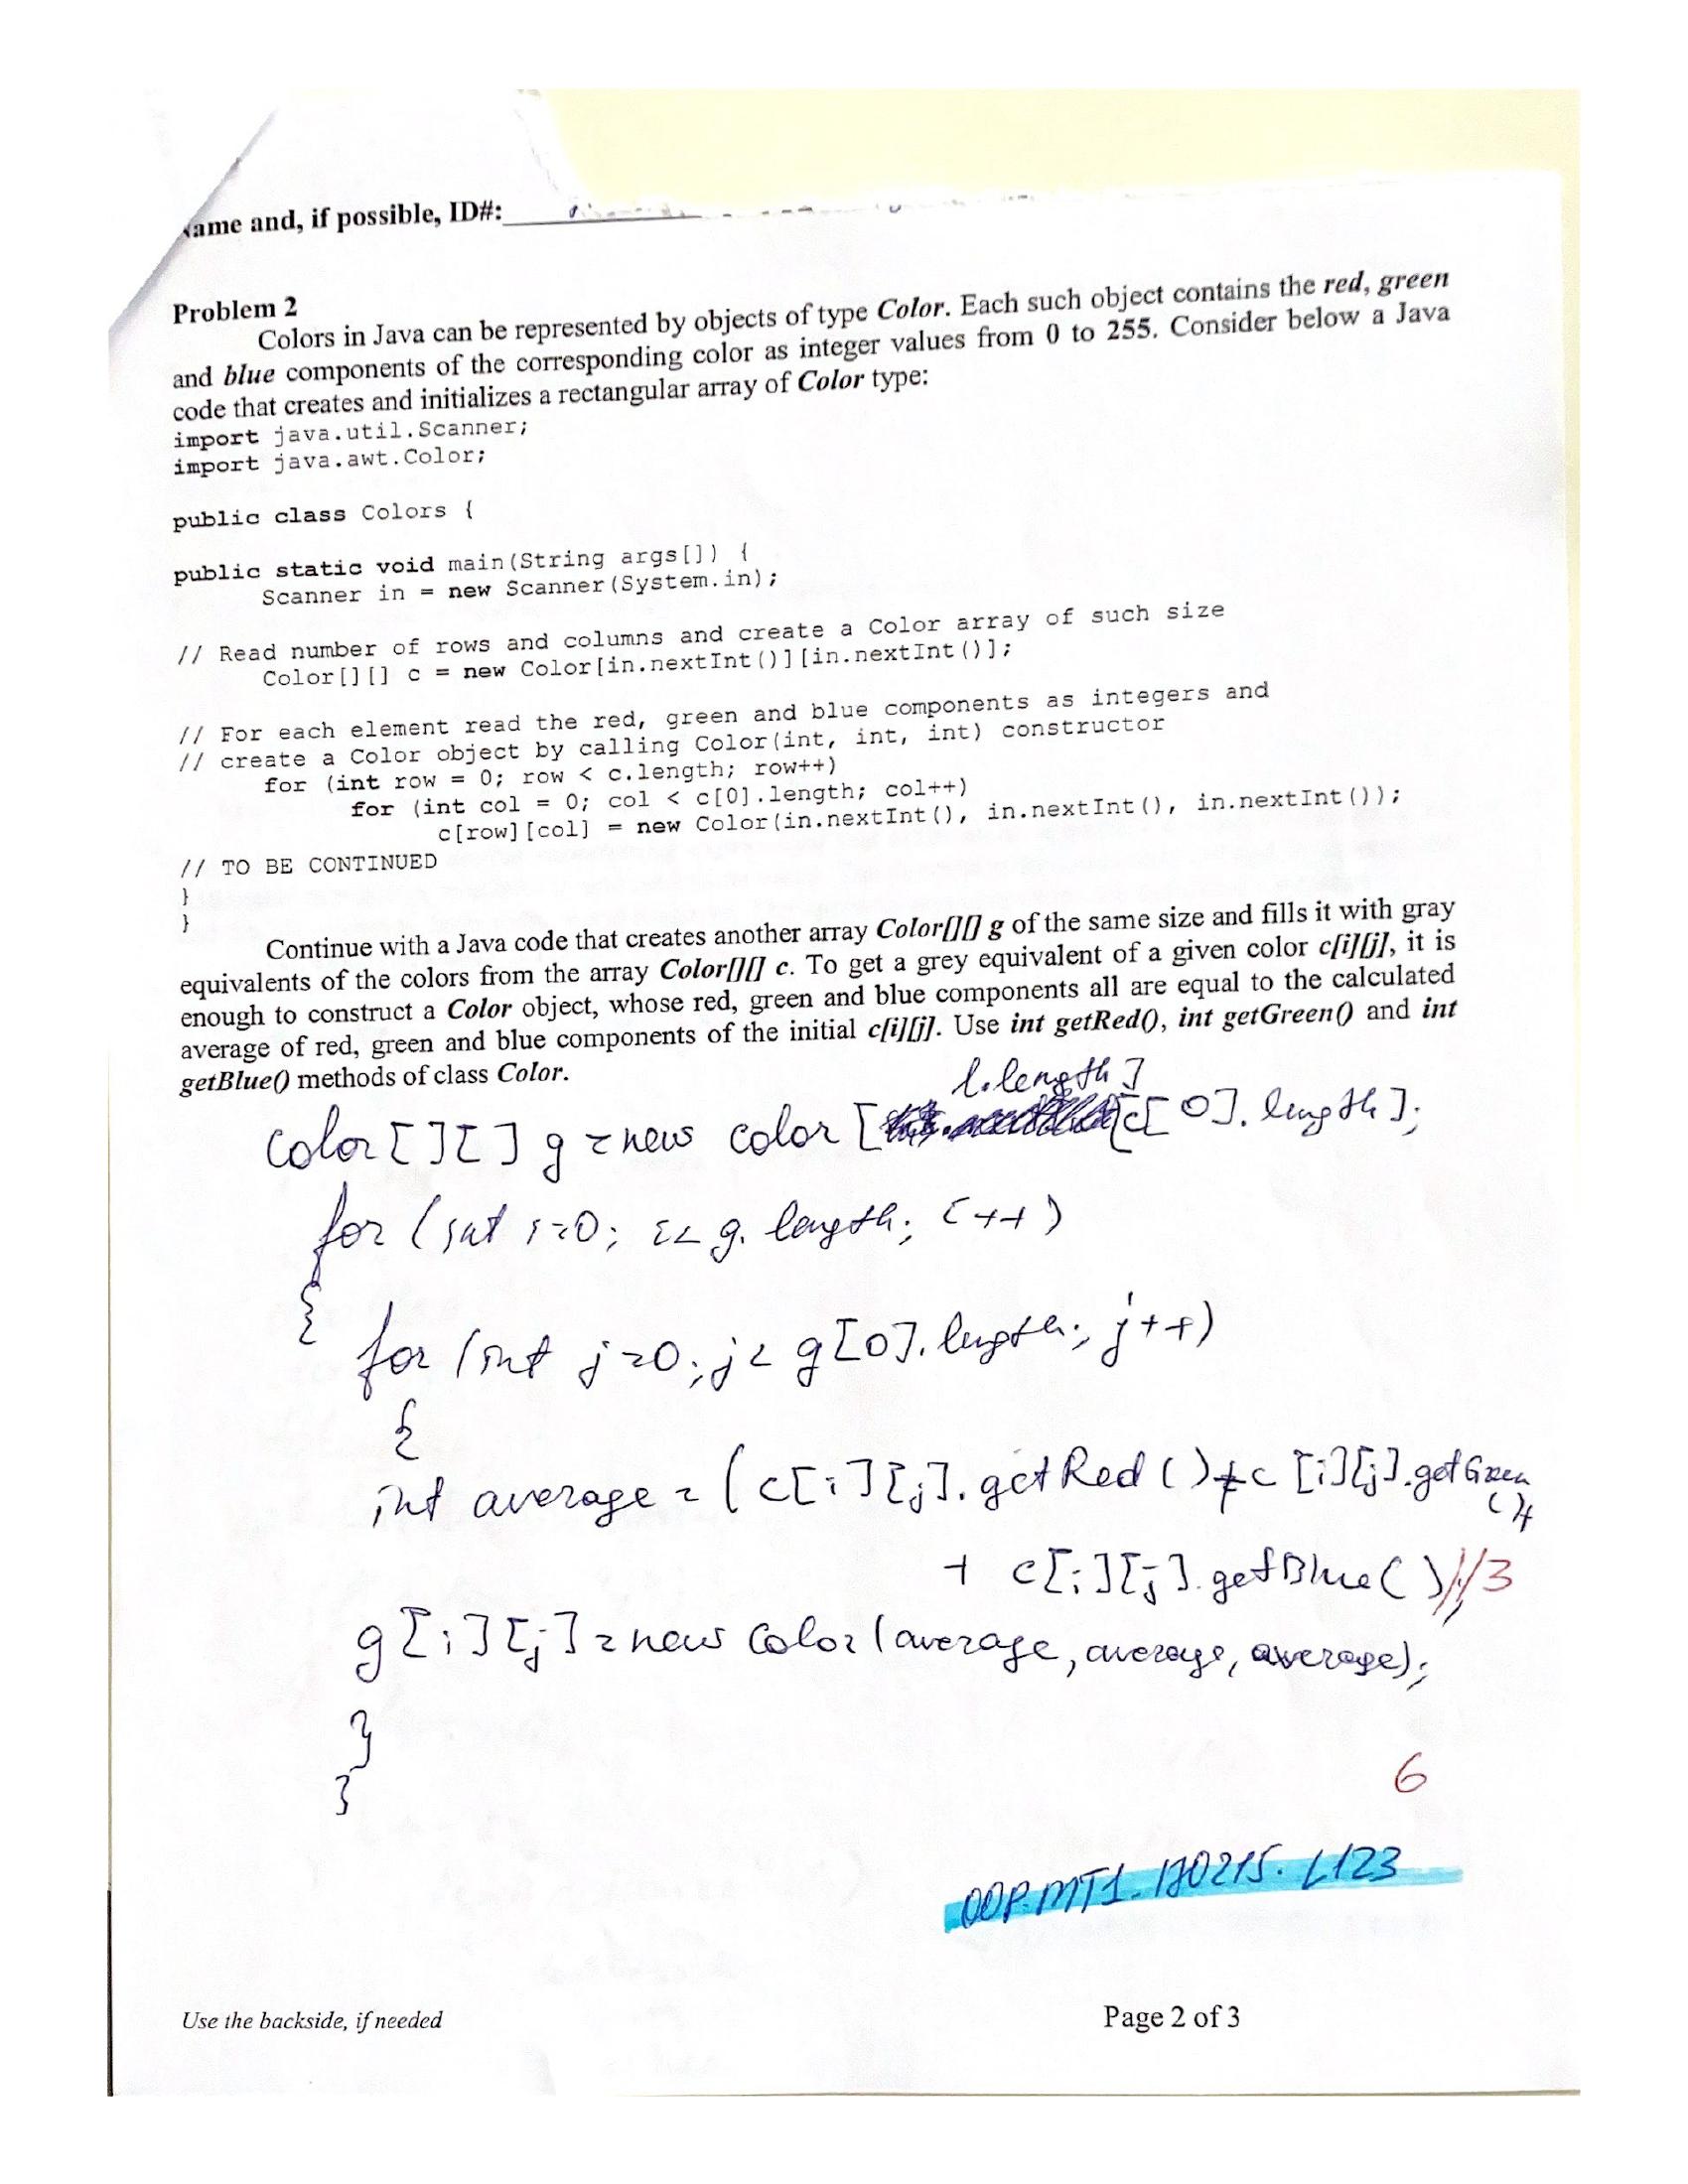 ame and, if possible, ID#:
Problem 2
Colors in Java can be represented by objects of type Color. Each such object contains the red, green
and blue components of the corresponding color as integer values from 0 to 255. Consider below a Java
code that creates and initializes a rectangular array of Color type:
import java.util.Scanner;
import java.awt.Color;
public class Colors {
public static void main(String args[]) {
Scanner in = new Scanner(System.in);
// Read number of rows and columns and create a Color array of such size
Color[][] c = new Color[in.nextInt()][in.nextInt()];
// For each element read the red, green and blue components as integers and
// create a Color object by calling Color(int, int, int) constructor
for (int row = 0; row < c.length; row++)
for (int col = 0; col < c[0].length; col++)
c[row][col] = new Color(in.nextInt(), in.nextInt(), in.nextInt());
// TO BE CONTINUED
}
}
Continue with a Java code that creates another array Color[][] g of the same size and fills it with gray
equivalents of the colors from the array Color[][] c. To get a grey equivalent of a given color c[i][j], it is
enough to construct a Color object, whose red, green and blue components all are equal to the calculated
average of red, green and blue components of the initial c[i][j]. Use int getRed(), int getGreen() and int
getBlue() methods of class Color.
c.length]
Color[][] g = new color [ [c[0].length];
for (int i=0; i< g.length; i++)
{
for (int j=0; j< g[0].length; j++)
{
int average = (c[i][j].getRed()+c[i][j].getGreen
()+
+ c[i][j].getBlue())//3
g[i][j] = new Color(average, average, average);
}
}
6
OOP.MT1.170215.L123
Use the backside, if needed
Page 2 of 3